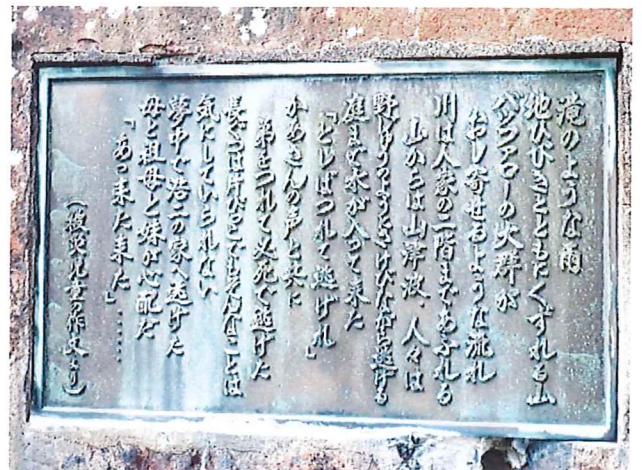 滝のような雨
地ひびきとともにくずれる山
バッファローの大群が
おし寄せるような流れ
川は人家の二階まであふれる
山からは山津波、人々は
野じゅうのようにさけびながら逃げる
庭まで水が入って来た
「としばつれて逃げれ」
かあさんの声と共に
弟をつれて必死で逃げた
長ぐつは片びっこでもそんなことは
気にしていられない
夢中で浩二の家へ逃げた
母と祖母と妹が心配だ
「あっ来た来た」……
(被災児童の作文より)